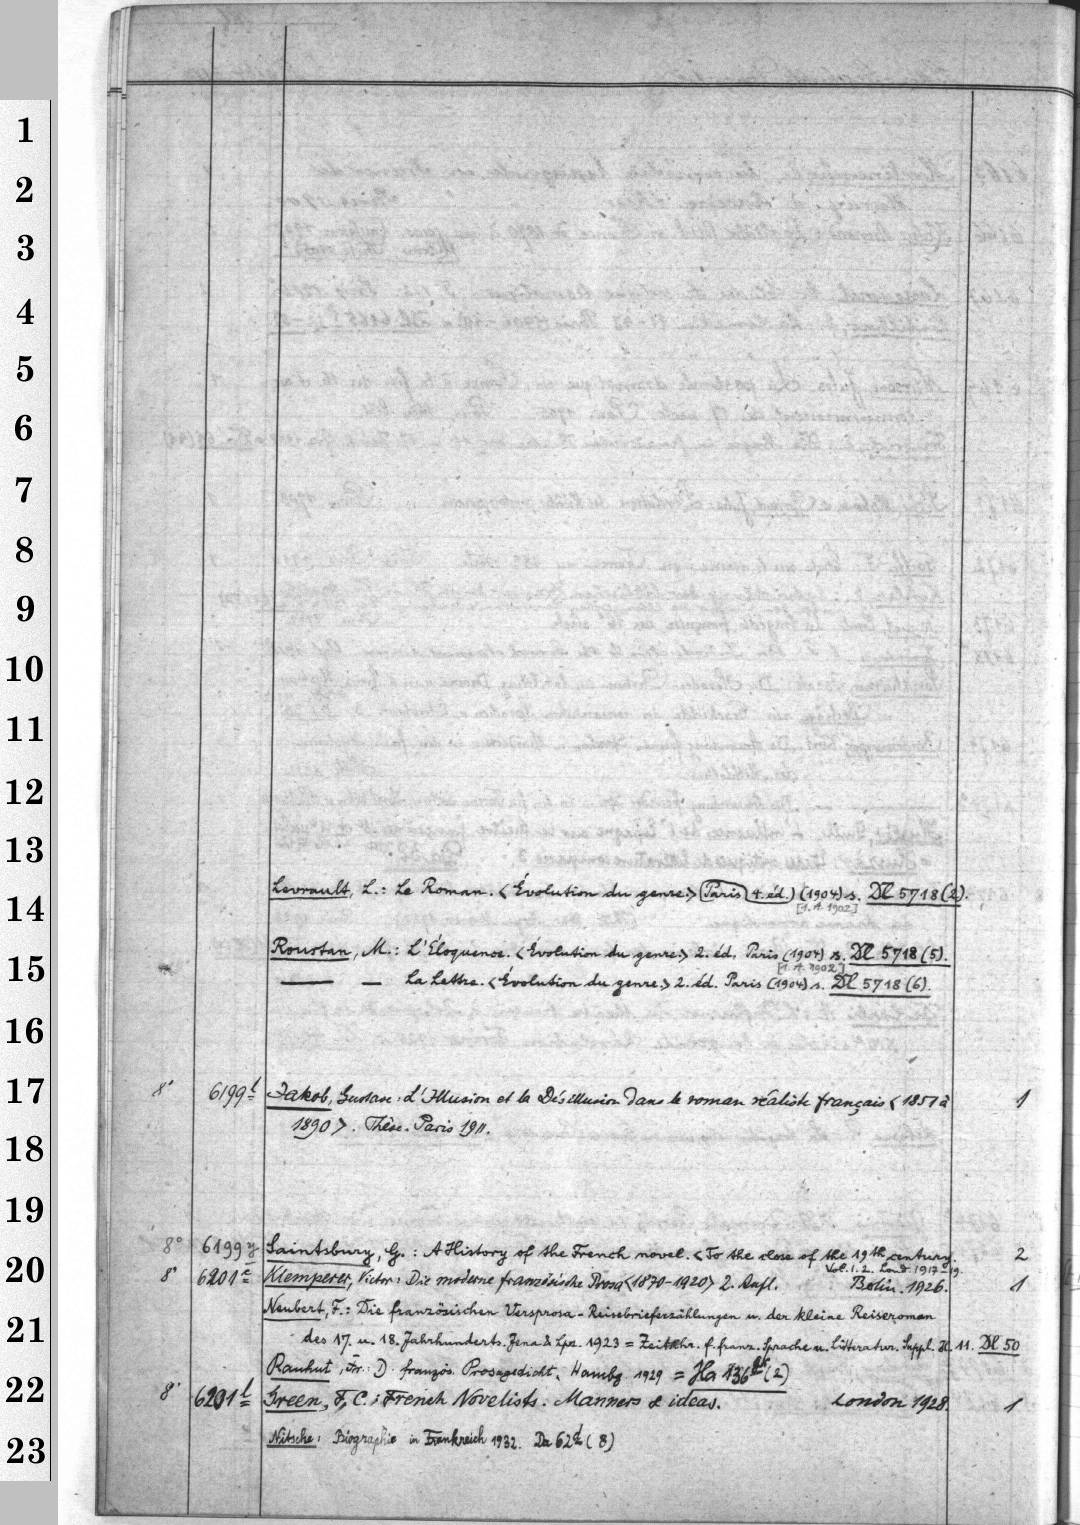 1
2
3
4
5
6
7
8
9
10
11
12
13
14
15
16
17
18
19
20
21
22
23
Levrault, L.: Le Roman. <Évolution du genre> Paris 4. éd.) (1904) s. Dl 5718 (2).
[1. A. 1902]
Roustan, M.: L'Éloquence. <Évolution du genre> 2. éd. Paris (1904) s. Dl 5718 (5).
[1. A. 1902]
— — La Lettre. <Évolution du genre> 2. éd. Paris (1904) s. Dl 5718 (6).
8° 6199 t Jakob, Gustave: L'Illusion et la Désillusion dans le roman réaliste français <1851 à 1
1890>. Thèse. Paris 1911.
8° 6199 y Saintsbury, G.: A History of the French novel. <To the close of the 19th century. 2
Vol. 1. 2. Lond. 1917-19.
8° 6201 c Klemperer, Victor: Die moderne französische Prosa <1870-1920> 2. Aufl. Berlin. 1926. 1
Neubert, F.: Die französischen Versprosa-Reisebrieferzählungen u. der kleine Reiseroman
des 17. u. 18. Jahrhunderts. Jena & Lpz. 1923 = Zeitschr. f. franz. Sprache u. Litteratur. Suppl. H. 11. Dl 50
Rauhut, Fr: D. französ. Prosagedicht. Hambg 1929 = Ha 136 (2)
8° 6201 t Green, F. C.: French Novelists. Manners & ideas. London 1928. 1
Nitsche: Biographie in Frankreich 1932. Da 62 d (8)